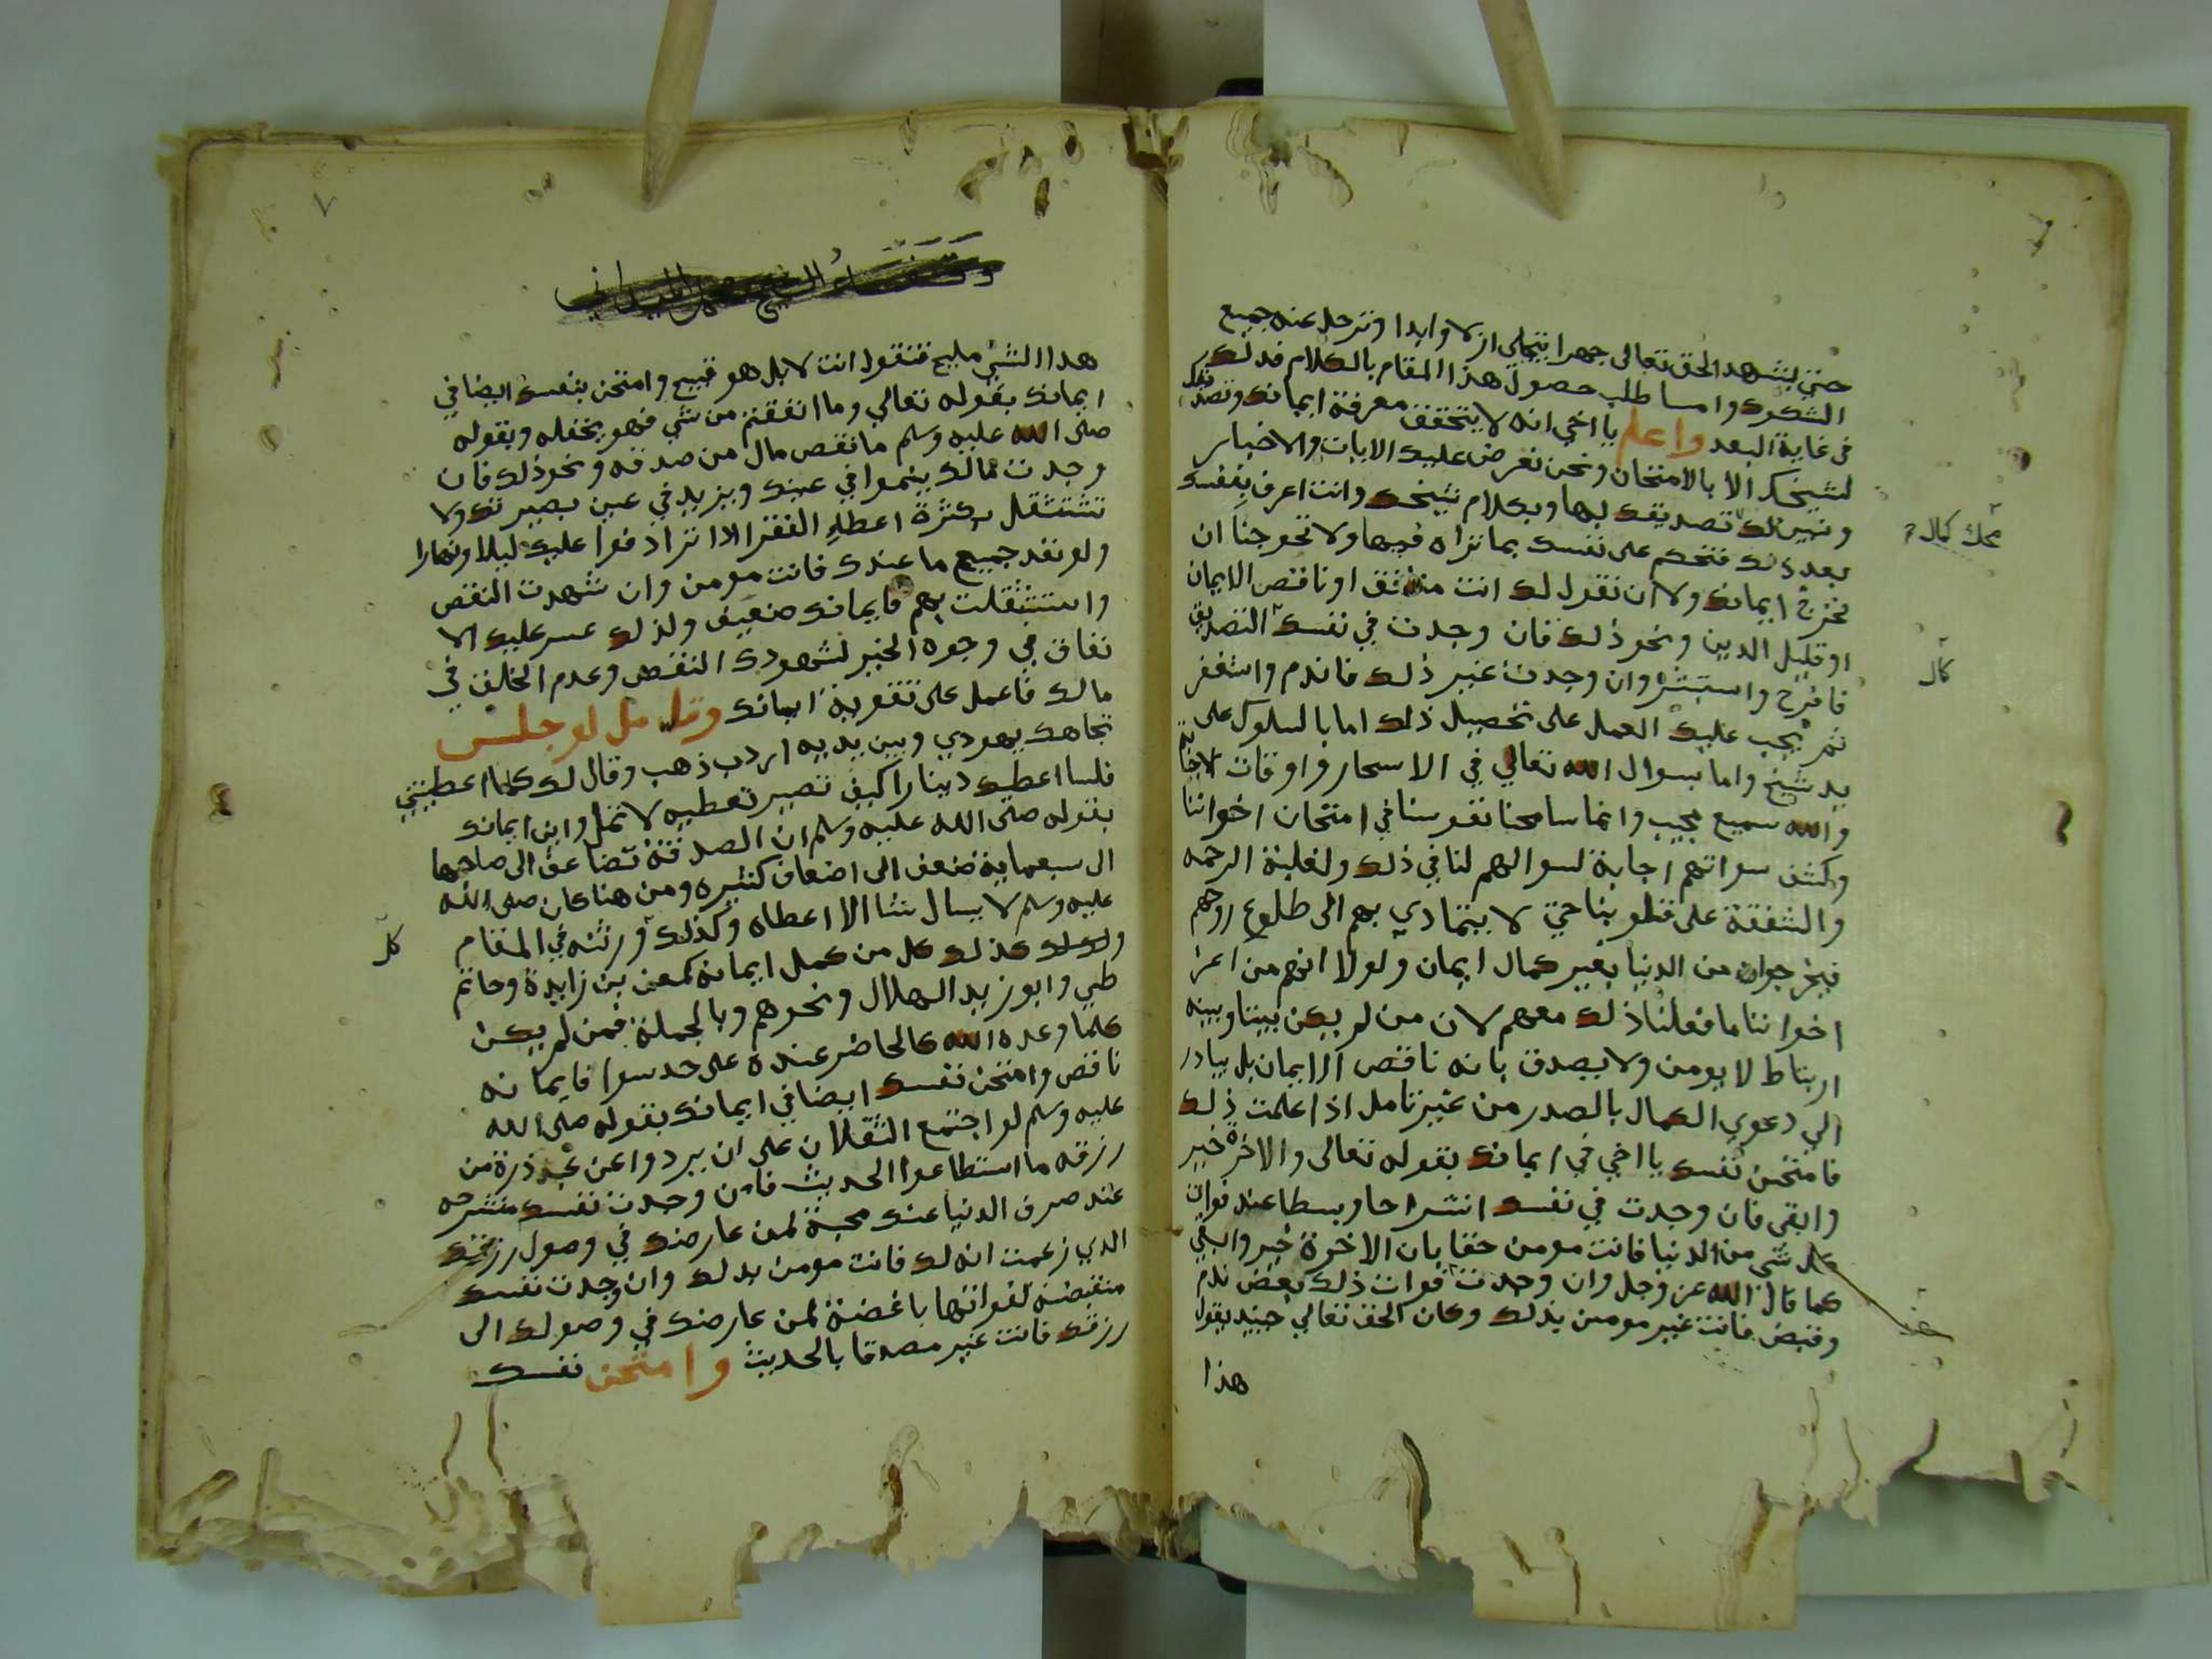 حتى يشهد الحق تعالى جهرا يتجلى ازلا وابدا وترحل عنه جميع
الشكوك وامـا طلب حصول هذا المقام بالكلام فذلك
في غاية البعد واعلم يا اخي انه لا يتحقق معرفة ايمانك وتصديقك
لشيخك الا بالامتحان ونحن نعرض عليك الايات والاخبار
وميزان تصديقك بها وبكلام شيخك وانت اعرف بنفسك
بعد ذلك فتحكم على نفسك بما تراه فيها ولا تحوجنا ان
نخرج ايمانك ولا ان نقول لك انت منافق او ناقص الايمان
او قليل الدين ونحو ذلك فان وجدت في نفسك التصديق
فافرح واستبشر وان وجدت غير ذلك فاندم واستغفر
ثم يجب عليك العمل على تحصيل ذلك اما بالسلوك على
يد شيخ واما بسوال الله تعالي في الاسحار واوقات الاجابة
والله سميع مجيب وانما سامحنا نفوسنا في امتحان اخواننا
وكشف سواتهم اجابة لسوالهم لنا في ذلك ولغلبة الرحمه
والشفقة على قلوبنا حتى لا يتمادي بهم الى طلوع روحهم
فيخرجوا من الدنيا بغير كمال ايمان ولولا انهم من اعز
اخواننا ما فعلنا ذلك معهم لان من لم يكن بيننا وبينه
ارتباط لا يومن ولا يصدق بانه ناقص الايمان بل يبادر
الي دعوي الكمال بالصدر من غير تامل اذا علمت ذلك
فامتحن نفسك يا اخي في ايمانك بقوله تعالى والاخرة خير
وابقى فان وجدت في نفسك انشراحا وبسطا عند فوات
كل شي من الدنيا فانت مومن حقا بان الاخرة خير وابقي
كما قال الله عز وجل وان وجدت فوات ذلك بعض ندم
وقبض فانت غير مومن بذلك وكان الحق تعالي حينيذ يقول
هذا
محك كمال
٧
هذا الشي مليح فتقول انت لا بل هو قبيح وامتحن نفسك ايضا في
ايمانك بقوله تعالي وما انفقتم من شي فهو يخلفه وبقوله
صلى الله عليه وسلم ما نقص مال من صدقه ونحو ذلك فان
وجدت مالك ينموا في عينك ويزيد في عين بصيرتك ولا
تستثقل بكثرة اعطاء الفقرا اذا ترادفوا عليك ليلا ونهارا
ولو نفد جميع ما عندك فانت مومن وان شهدت النقص
واستثقلت بهم فايمانك ضعيف ولذلك عسر عليك الا
نفاق في وجوه الخير لشهودك النقص وعدم الخلف في
مالك فاعمل على تقوية ايمانك وتامل لو جلس
تجاهك يهودي وبين يديه اردب ذهب وقال لك كلما اعطيتني
فلسا اعطيك دينارا كيف تصير تعطيه لا تمل واين ايمانك
بقوله صلى الله عليه وسلم ان الصدقة تضاعف الى صاحبها
الى سبعماية ضعف الى اضعاف كثيره ومن هنا كان صلى الله
عليه وسلم لا يسال شيا الا اعطاه وكذلك ورثته في المقام
وكذلك كل من كمل ايمانه كمعن بن زايدة وحاتم
طي وابو زيد الهلال ونحوهم وبالجملة فمن لم يكن
كلما وعده الله كالحاضر عنده على حد سوا فايمانه
ناقص وامتحن نفسك ايضا في ايمانك بقوله صلى الله
عليه وسلم لو اجتمع الثقلان على ان يردوا عن عبد ذرة من
رزقه ما استطاعوا الحديث فان وجدت نفسك منشرحه
عند صرف الدنيا عنك محبة لمن عارضك في وصول رزقك
الذي زعمت انه لك فانت مومن بذلك وان وجدت نفسك
منقبضة لفواتها باغضة لمن عارضك في وصولك الى
رزقك فانت غير مصدقا بالحديث وامتحن نفسك